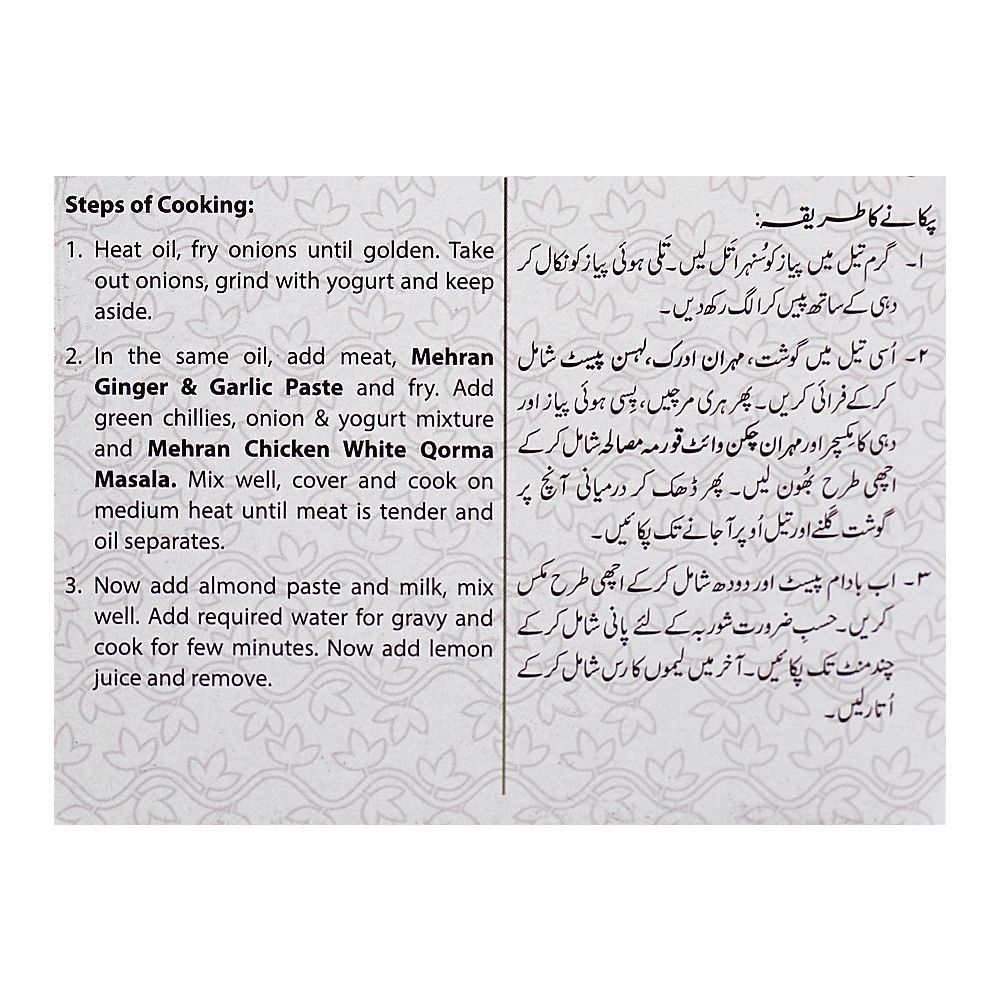 Steps of Cooking:
1. Heat oil, fry onions until golden. Take
out onions, grind with yogurt and keep
aside.
2. In the same oil, add meat, Mehran
Ginger & Garlic Paste and fry. Add
green chillies, onion & yogurt mixture
and Mehran Chicken White Qorma
Masala. Mix well, cover and cook on
medium heat until meat is tender and
oil separates.
3. Now add almond paste and milk, mix
well. Add required water for gravy and
cook for few minutes. Now add lemon
juice and remove.
پکانے کا طریقہ:
۱۔ گرم تیل میں پیاز کو سُنہرا تَل لیں۔ تَلی ہوئی پیاز کو نکال کر
دہی کے ساتھ پیس کر الگ رکھ دیں۔
۲۔ اُسی تیل میں گوشت، مہران ادرک، لہسن پیسٹ شامل
کر کے فرائی کریں۔ پھر ہری مرچیں، پِسی ہوئی پیاز اور
دہی کا مکسچر اور مہران چکن وائٹ قورمہ مصالحہ شامل کر کے
اچھی طرح بھُون لیں۔ پھر ڈھک کر درمیانی آنچ پر
گوشت گلنے اور تیل اُوپر آجانے تک پکائیں۔
۳۔ اب بادام پیسٹ اور دودھ شامل کر کے اچھی طرح مکس
کریں۔ حسبِ ضرورت شوربہ کے لئے پانی شامل کر کے
چند منٹ تک پکائیں۔ آخر میں لیموں کا رس شامل کر کے
اُتار لیں۔